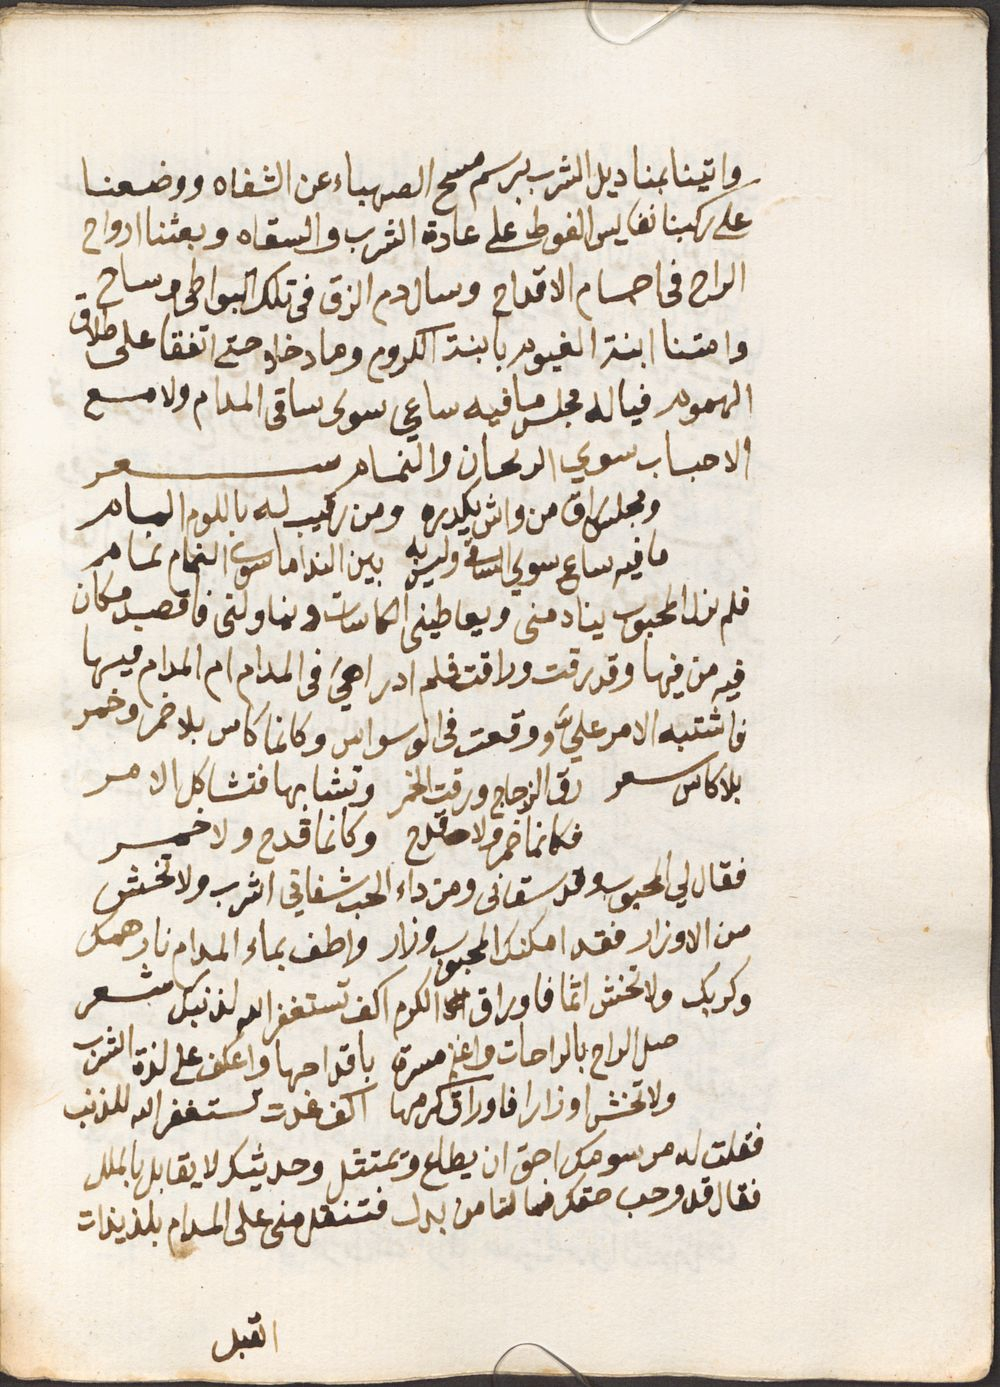 واتينا بمناديل الشرب برسم مسح الصهباء عن الشفاه ووضعنا
على ركبنا نفايس الفوط على عادة الشرب والسقاه وبعثنا ارواح
الراح في اجسام الاقداح وسال دم الزق في تلك البواطي وساح
وامتنا ابنة الغيوم بابنة الكروم وما دخلا حتى اتفقا على طلاق
الهموم فياله مجلس ما فيه ساعي سوى ساقي المدام ولا مع
الاحباب سوي الريحان والنمام شعر
ومجلس راق من واش يكدره ومن رقيب له باللوم ايلام
ما فيه ساع سوي الساقي وليس به بين الندامى سوى النمام نمام
فلم يزل المحبوب ينادمني ويعاطيني الكاسات ويناولني فاقصد مكان
فيه من فيها وقد رقت وراقت فلم ادر اهي في المدام ام المدام فيها
فاشتبه الامر علي ووقعت في الوسواس وكانما كاس بلا خمر وخمر
بلا كاس شعر رق الزجاج ورقت الخمر وتشابها فتشاكل الامر
فكانما خمر ولا قدح وكانما قدح ولا خمر
فقال لي المحبوب وقد سقاني ومن داء الحب شفاني اشرب ولا تخش
من الاوزار فقد امكنك المحبوب وزار واطف بماء المدام نار همك
وكربك ولا تخش اثما فاوراق الكرم اكف تستغفر الله لذنبك شعر
صل الراح بالراحات واغنم مسرة باقداحها واعكف على لذة الشرب
ولا تخش اوزارا فاوراق كرمها اكف غدت تستغفر الله للذنب
فقلت له مرسومك احق ان يطاع ويمتثل وحديثك لا يقابل بالملل
فقال قد وجب حقك فما لنا من بدل فتنقل مني على المدام بلذيذات
القبل